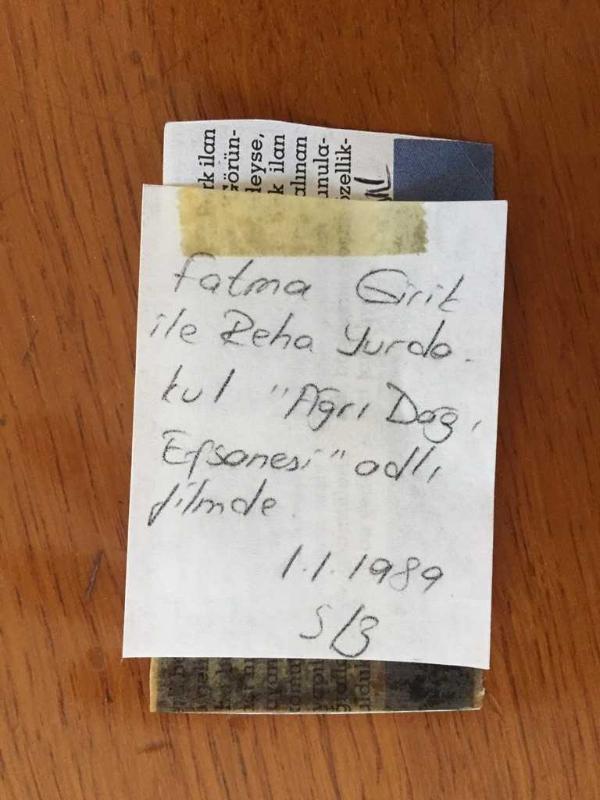 rk ilan
Görün-
deyse,
k ilan
alınan
unula-
özellik-
Fatma Girit
ile Reha Yurda-
kul "Ağrı Dağı
Efsanesi" adlı
filmde.
1.1.1989
S/3